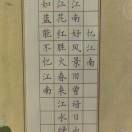 忆江南
江南好风景旧曾谙日出
江花红胜火春来江水绿
如蓝能不忆江南